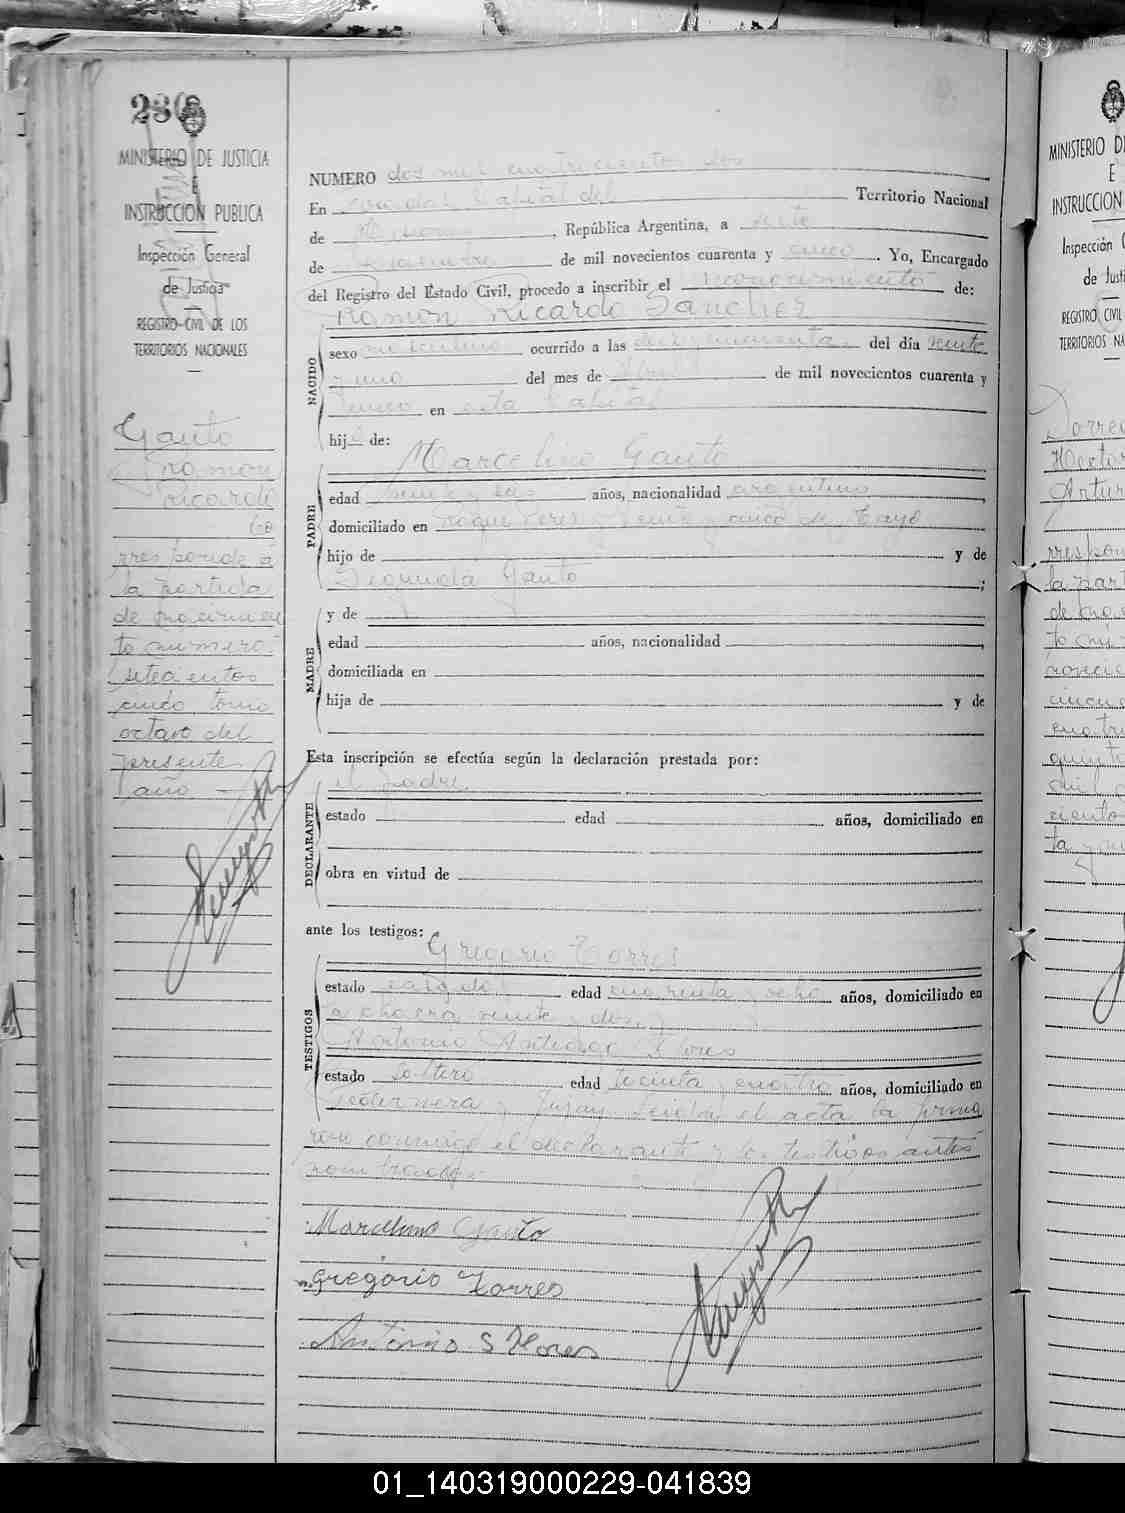 236
MINISTERIO DE JUSTICIA
E
INSTRUCCION PUBLICA
Inspección General
de Justicia
REGISTRO CIVIL DE LOS
TERRITORIOS NACIONALES
Gauto
Ramon
Ricardo
Co
rresponde a
la partida
de nacimien
to numero
setecientos
cinco tomo
octavo del
presente
año
NUMERO dos mil cuatrocientos dos
En Posadas Capital del Territorio Nacional
de Misiones, República Argentina, a siete
de de mil novecientos cuarenta y cinco. Yo, Encargado
del Registro del Estado Civil, procedo a inscribir el reconocimiento de:
Ramon Ricardo Sanchez
NACIDO
sexo masculino ocurrido a las del día veinte
y uno del mes de de mil novecientos cuarenta y
cinco en esta Capital
hijo de:
Marcelino Gauto
PADRE
edad años, nacionalidad argentino,
domiciliado en Roque Perez y Veinte y cinco de Mayo
hijo de y de
Segunda Gauto;
MADRE
y de
edad años, nacionalidad,
domiciliada en
hija de y de
Esta inscripción se efectúa según la declaración prestada por:
el padre
DECLARANTE
estado edad años, domiciliado en
obra en virtud de
ante los testigos:
Gregorio Torres
TESTIGOS
estado casado edad cuarenta y ocho años, domiciliado en
la chacra veinte y dos, y
Antonio Flores
estado soltero edad treinta y cuatro años, domiciliado en
y Jujuy. Leida el acta la firma
ron conmigo el declarante y los testigos antes
nombrados.
Marcelino Gauto
Gregorio Torres
Antonio S Flores
MINISTERIO D
E
INSTRUCCION
Inspección G
de Justi
REGISTRO CIVIL
TERRITORIOS NA
Hector
Artur
rrespon
la part
de nac
01_140319000229-041839